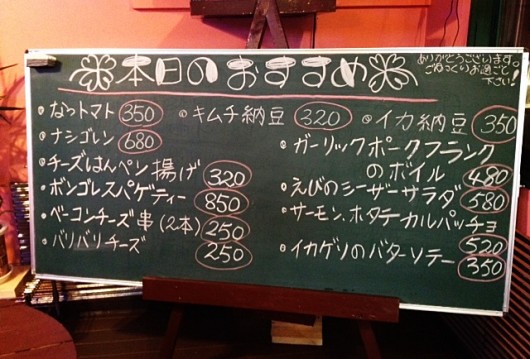 本日のおすすめ
ありがとうございます。
ごゆっくりお過ごし
下さい!
なっトマト 350
キムチ納豆 320
イカ納豆 350
ナシゴレン 680
チーズはんペン揚げ 320
ボンゴレスパゲティー 850
ベーコンチーズ串(2本) 250
バリバリチーズ 250
ガーリックポークフランク
のボイル 480
えびのシーザーサラダ 580
サーモン、ホタテカルパッチョ
520
イカゲソのバターソテー 350